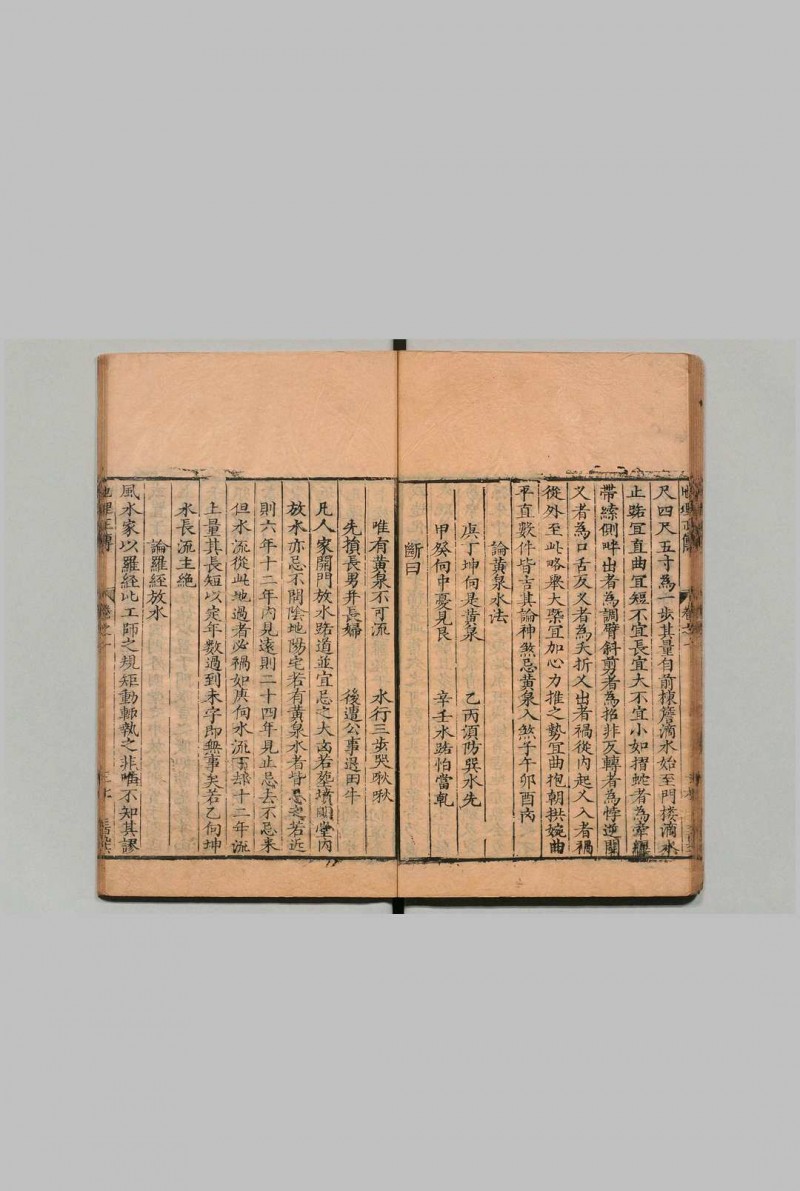 尺四尺五寸為一步其量自前棟簷滴水始至門楼滴水
止路宜直曲宜短不宜長宜大不宜小如摺蛇者為牽纒
帶縧側畔出者為調臂斜剪者為招非反轉者為悖逆關
义者為口舌反义者為夭折义出者禍從內起义入者禍
從外至此略舉大槩宜加心力推之勢宜曲抱朝拱婉曲
平直數件皆吉其論神煞忌黃泉入煞子午卯酉內
論黃泉水法
庚丁坤向是黃泉 乙丙須防巽水先
甲癸向中憂見艮 辛壬水路怕當乹
斷曰
唯有黃泉不可流 水行三步哭啾啾
先損長男并長婦 後遭公事退田牛
凡人家開門放水路道並宜忌之大凶若塟墳明堂內
放水亦忌不問陰地陽宅若有黃泉水者皆忌之若近
則六年十二年內見遠則二十四年見止忌去不忌來
但水流從此地過者必禍如庚向水流坤十二年流
上量其長短以定年數過到未字即無事矣若乙向坤
水長流主絶
論羅經放水
風水家以羅經比工師之規矩動輙執之非嘴不知其謬
地理正傳
卷之